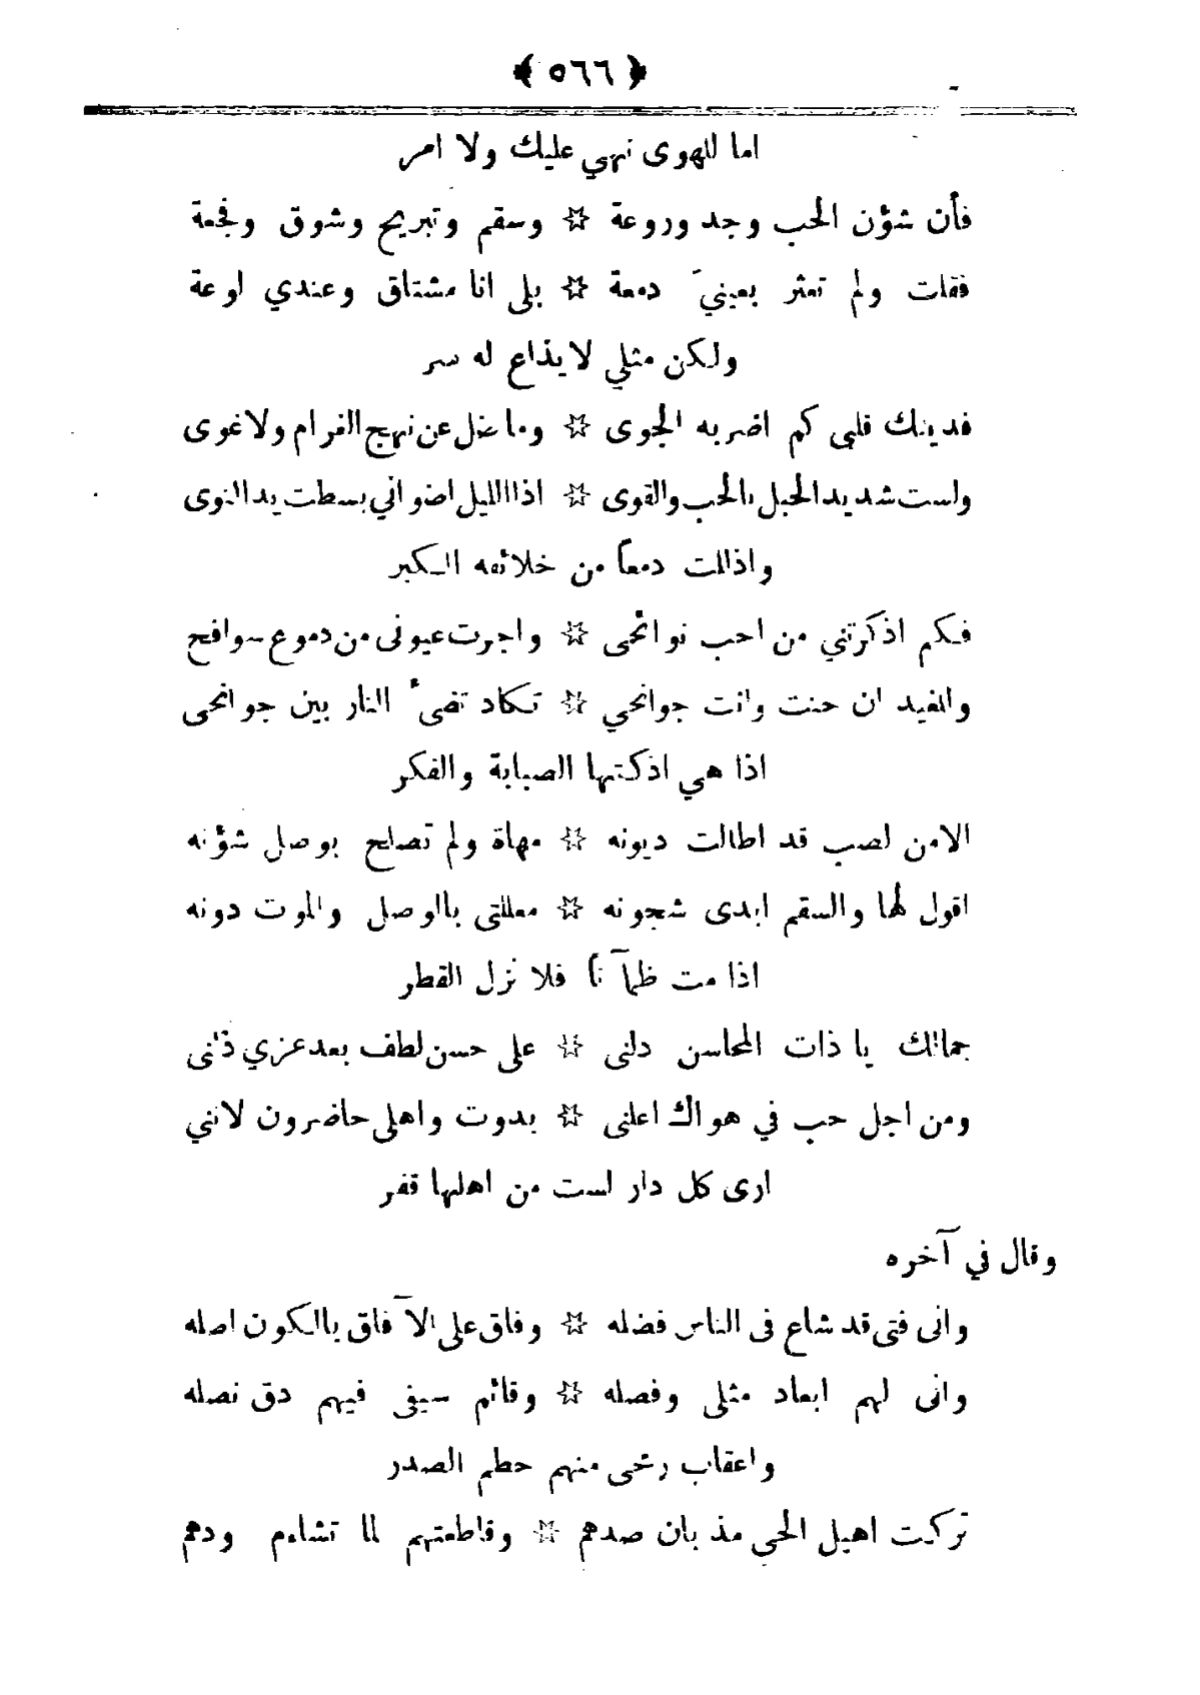 ﴿ ٥٦٦ ﴾
اما للهوى نهي عليك ولا امر
فأن شؤن الحب وجد وروعة ☆ وسقم وتبريح وشوق وفجعة
فقلت ولم تعثر بعينيَ دمعة ☆ بلى انا مشتاق وعندي لوعة
ولكن مثلي لايذاع له سر
فدينك قلبى كم اضربه الجوى ☆ وما ضل عن نهج الغرام ولاغوى
ولست شديد الحبل بالحب والقوى ☆ اذا الليل اضواني بسطت يد النوى
واذللت دمعاً من خلائقه الكبر
فكم اذكرتني من احب نوائحى ☆ واجرت عيونى من دموع سوافح
والغيد ان حنت وانت جوانحي ☆ تكاد تضىء النار بين جوانحى
اذا هي اذكتها الصبابة والفكر
الامن لصب قد اطالت ديونه ☆ مهاة ولم تصلح بوصل شؤنه
اقول لها والسقم ابدى شجونه ☆ معللتى بالوصل والموت دونه
اذا مت ظمآنا فلا نزل القطر
جمالك يا ذات المحاسن دلنى ☆ على حسن لطف بعد عزي ذلنى
ومن اجل حب في هواك اعلنى ☆ بدوت واهلى حاضرون لانني
ارى كل دار لست من اهلها قفر
وقال في آخره
وانى فتى قد شاع فى الناس فضله ☆ وفاق على الآفاق بالكون اصله
وانى لهم ابعاد مثلى وفصله ☆ وقائم سيفى فيهم دق نصله
واعقاب رمحى منهم حطم الصدر
تركت اهيل الحي مذ بان صدهم ☆ وقاطعتهم لما تشاءم ودهم